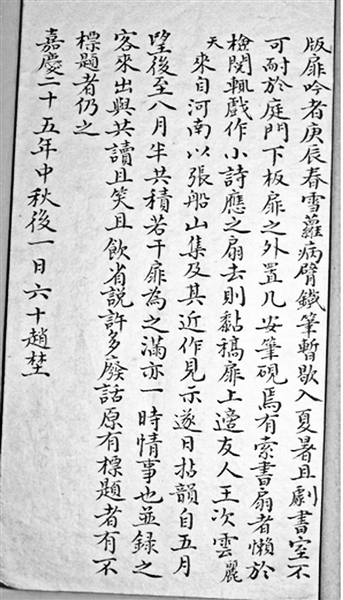 版扉吟者庚辰春雪蘿病臂鐵筆暫歇入夏暑且劇書室不
可耐於庭門下板扉之外置几安筆硯焉有索書扇者懶於
檢閱輒戲作小詩應之扇去則黏稿扉上適友人王次雲麗
天來自河南以張船山集及其近作見示遂日拈韻自五月
望後至八月半共積若干扉為之滿亦一時情事也並錄之
客來出與共讀且笑且飲省說許多廢話原有標題者有不
標題者仍之
嘉慶二十五年中秋後一日六十趙埜